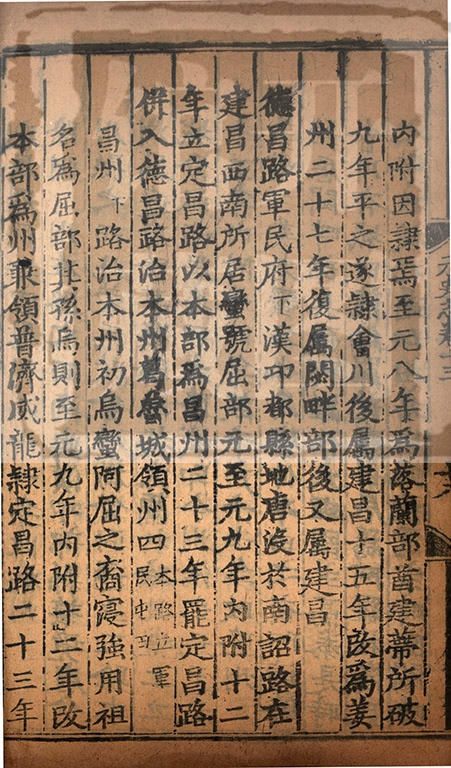 内附因隸焉至元八年爲落蘭部酋建蒂所破
九年平之遂隸會川後屬建昌十五年改爲姜
州二十七年復屬闊畔部後又屬建昌
德昌路軍民府下漢邛都縣地唐沒於南詔路在
建昌西南所居蠻號屈部元至元九年內附十二
年立定昌路以本部爲昌州二十三年罷定昌路
併入德昌路治本州葛魯城領州四本路立軍民屯田
昌州下路治本州初烏蠻阿屈之裔寖強用祖
名爲屈部其孫烏則至元九年內附十二年改
本部爲州兼領普濟威龍隸定昌路二十三年